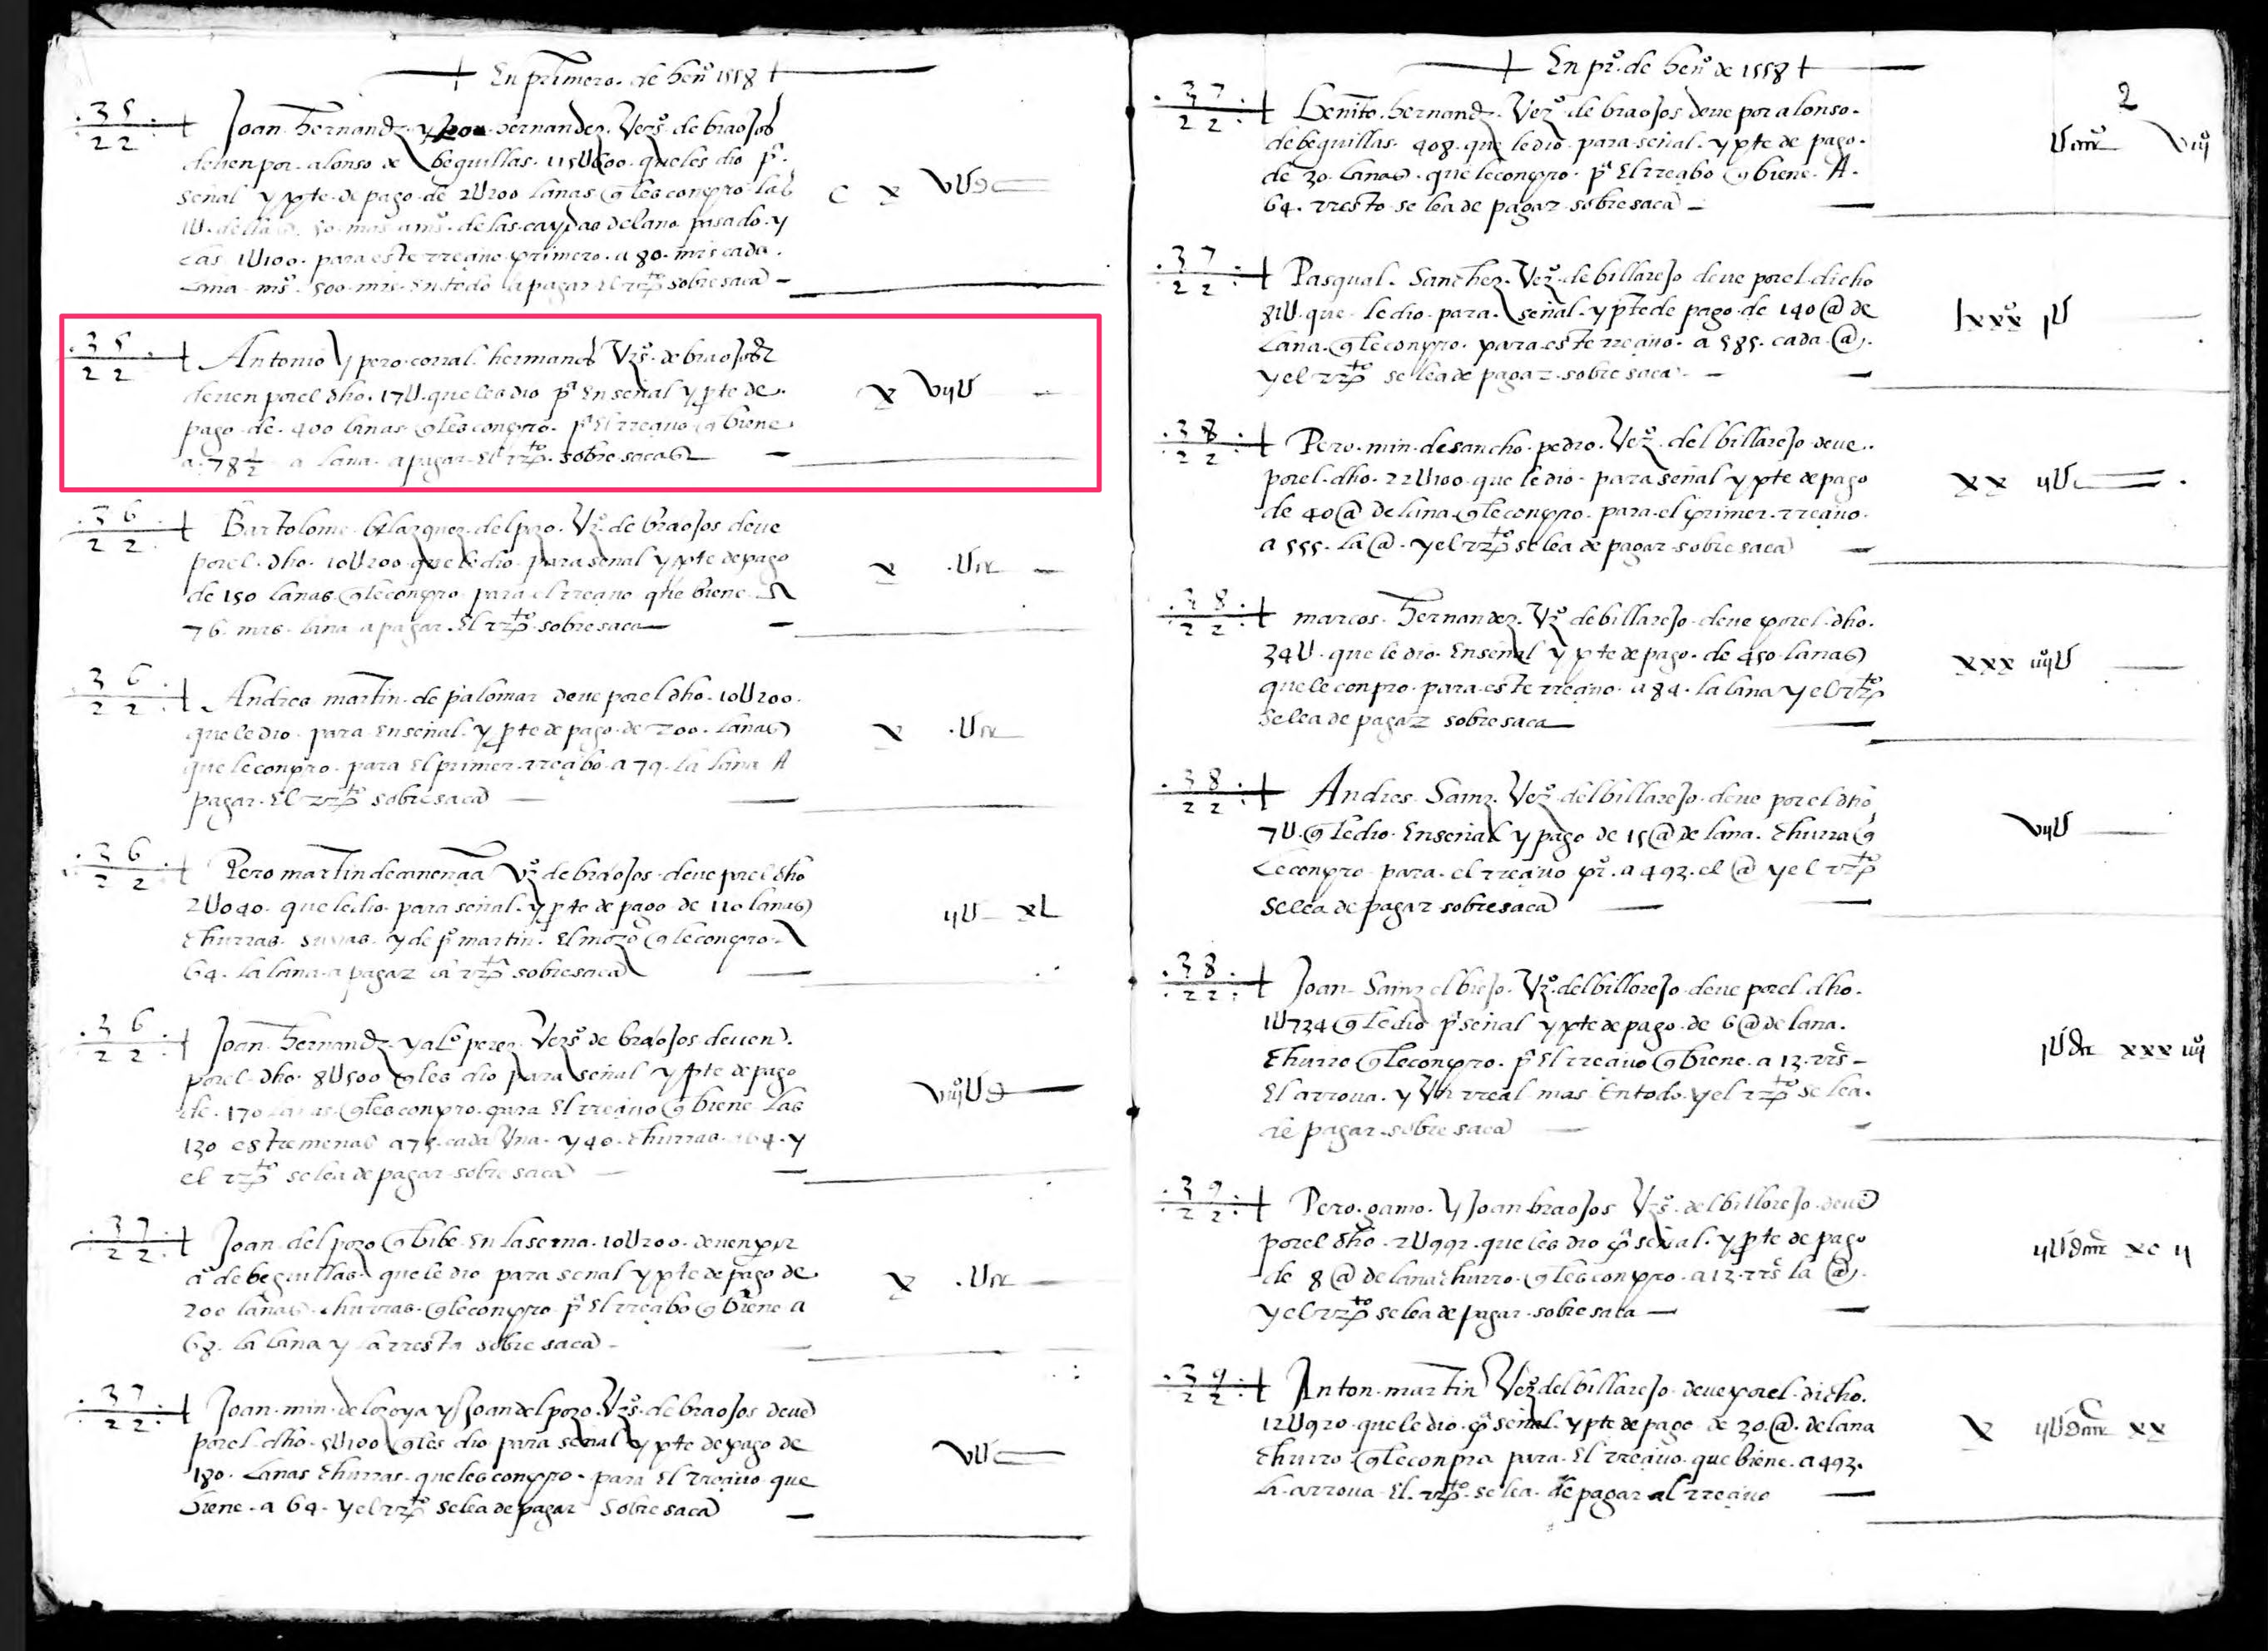 † En primero de hen.º 1558 †
35
22
Joan hernandz y hernandez Vezºs de braojos
deven por alonso de beguillas 115U600 que les dio pª
señal y pte de pago de 2U200 lanas q les conpro las
1U de las caydas del ano pasado y
las 1U100 para este rreçiuo primero a 80 mrs cada
lana ms 500 mrs en todo a pagar el rrzpto sobre saca
c x vU dc
35
22
Antonio y pero corral hermanos Vzºs de braojos
deven por el dho 17U que les dio pª En señal y pte de
pago de 400 lanas q les conpro pª El rreçiuo q biene
a 78 ½ a lana a pagar El rrzpto sobre saca
x vijU
36
22
Bartolome belazquez del pozo Vzº de braojos deve
por el dho 10U200 que le dio para señal y pte de pago
de 150 lanas q le conpro para el rreçiuo que biene a
76 mrs lana a pagar El rrzpto sobre saca
x Ucc
36
22
Andres martin de palomar deve por el dho 10U200
que le dio para En señal y pte de pago de 200 lanas
que le conpro para El primer rreçibo a 79 la lana A
pagar El rrzpto sobre saca
x Ucc
36
22
Pero martin de Vzº de braojos deve por el dho
2U040 que le dio para señal y pte de pago de 110 lanas
churras suyas y de pº martin El mozo q le conpro a
64 la lana a pagar rrzpto sobre saca
ijU xL
36
22
Joan hernandz y alº perez Vezºs de braojos deven
por el dho 8U500 q les dio para señal y pte de pago
de 170 lanas q les conpro para El rreçiuo q biene las
130 estremenas a 75 cada Una y 40 churras a 64 y
el rrzpto se lea de pagar sobre saca
viijU d
37
22
Joan del pozo q bibe En la serna 10U200 deven por
aº de beguillas que le dio para señal y pte de pago de
200 lanas churras q le conpro pª El rreçibo q biene a
68 la lana y la rresta sobre saca
x Ucc
37
22
Joan min de lozoya y Joan del pozo Vzºs de braojos deve
por el dho 5U100 q les dio para señal y pte de pago de
180 Lanas churras que les conpro para El rreçiuo que
biene a 64 y el rrzpto se lea de pagar sobre saca
vUc
† En prº de henº de 1558 †
2
37
22
Benito hernandz Vezº de braojos deve por alonso
de beguillas 408 que le dio para señal y pte de pago
de 30 lanas que le conpro pª El rreçibo q biene A
64 rresto se lea de pagar sobre saca
Ucccc viijº
37
22
Pasqual Sanchez Vezº de billarejo deve por el dicho
81U que le dio para señal y pte de pago de 140 @ de
Lana q le conpro para este rreçiuo a 585 cada @
y el rrzpto se lea de pagar sobre saca
lxxx jU
38
22
Pero min de sancho pedro Vezº del billarejo deve
por el dho 22U100 que le dio para señal y pte de pago
de 40 @ de lana q le conpro para el primer rreçiuo
a 555 la @ y el rrzpto se lea de pagar sobre saca
xx ijUc
38
22
marcos hernandez Vzº de billarejo deve por el dho
34U que le dio En señal y pte de pago de 450 lanas
que le conpro para este rreçiuo a 84 la lana y el rrzpto
se lea de pagar sobre saca
xxx iiijU
38
22
Andres Sainz Vezº del billarejo deve por el dho
7U q le dio En señal y pago de 15 @ de lana churra q
le conpro para el rreçiuo prº a 493 el @ y el rrzpto
se lea de pagar sobre saca
vijU
38
22
Joan Sainz el biejo Vzº del billarejo deve por el dho
1U734 q le dio pª señal y pte de pago de 6 @ de lana
churro q le conpro pª El rreçiuo q biene a 13 rrs
El arroua y Un rreal mas En todo y el rrzpto se lea
de pagar sobre saca
jUdcc xxx iiijº
39
22
Pero gamo y Joan braojos Vzºs del billarejo deve
por el dho 2U992 que les dio pª señal y pte de pago
de 8 @ de lana churro q les conpro a 13 rrs la @
y el rrzpto se lea de pagar sobre saca
ijUdcccc xc ij
39
22
Anton martin Vezº del billarejo deve por el dicho
12U920 que le dio pª señal y pte de pago de 30 @ de lana
churro q le conpro para El rreçiuo que biene a 493
la arroua El rrzpto se lea de pagar al rreçiuo
x ijUdcccc xx